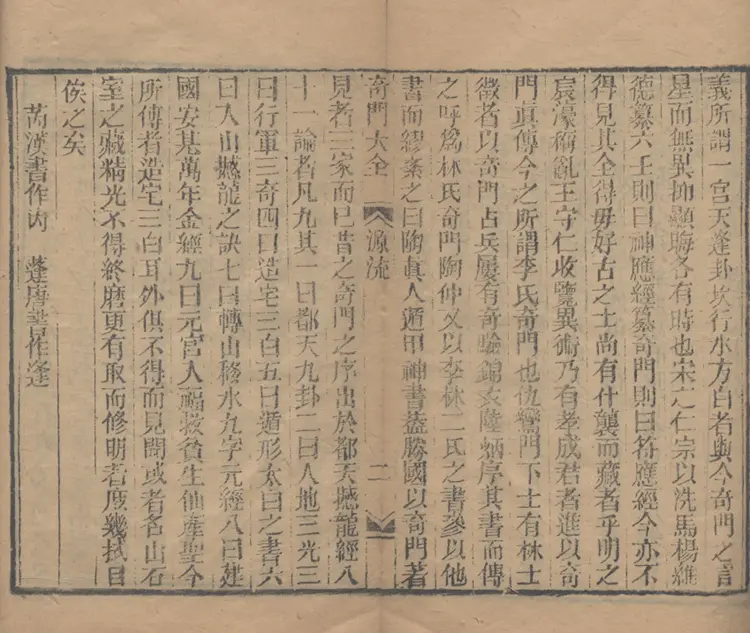 義所謂一宮天蓬卦坎行水方白者與今奇門之言
星而無異抑顯晦各有時也宋之仁宗以洗馬楊維
德纂六壬則曰神應經纂奇門則曰符應經今亦不
得見其全得毋好古之士尚有什襲而藏者乎明之
宸濠稱亂王守仁收覽異術乃有李成君者進以奇
門真傳今之所謂李氏奇門也仇鸞門下士有林士
徵者以奇門占兵屢有奇驗錦衣陸炳序其書而傳
之呼為林氏奇門陶仲文以李林二氏之書參以他
書而繆紊之曰陶真人遁甲神書葢勝國以奇門著
奇門大全 源流 二
見者三家而已昔之奇門之序出於都天撼龍經八
十一論者凡九其一曰都天九卦二曰人地三光三
曰行軍三奇四曰造宅三白五曰遁形太白之書六
曰入山撼龍之訣七曰轉山移水九字元經八曰建
國安基萬年金經九曰元宮入福救貧生仙產聖今
所傳者造宅三白耳外俱不得而見聞或者名山石
室之藏精光不得終磨更有取而修明者庶幾拭目
俟之矣
芮漢書作内 蓬唐書作逢